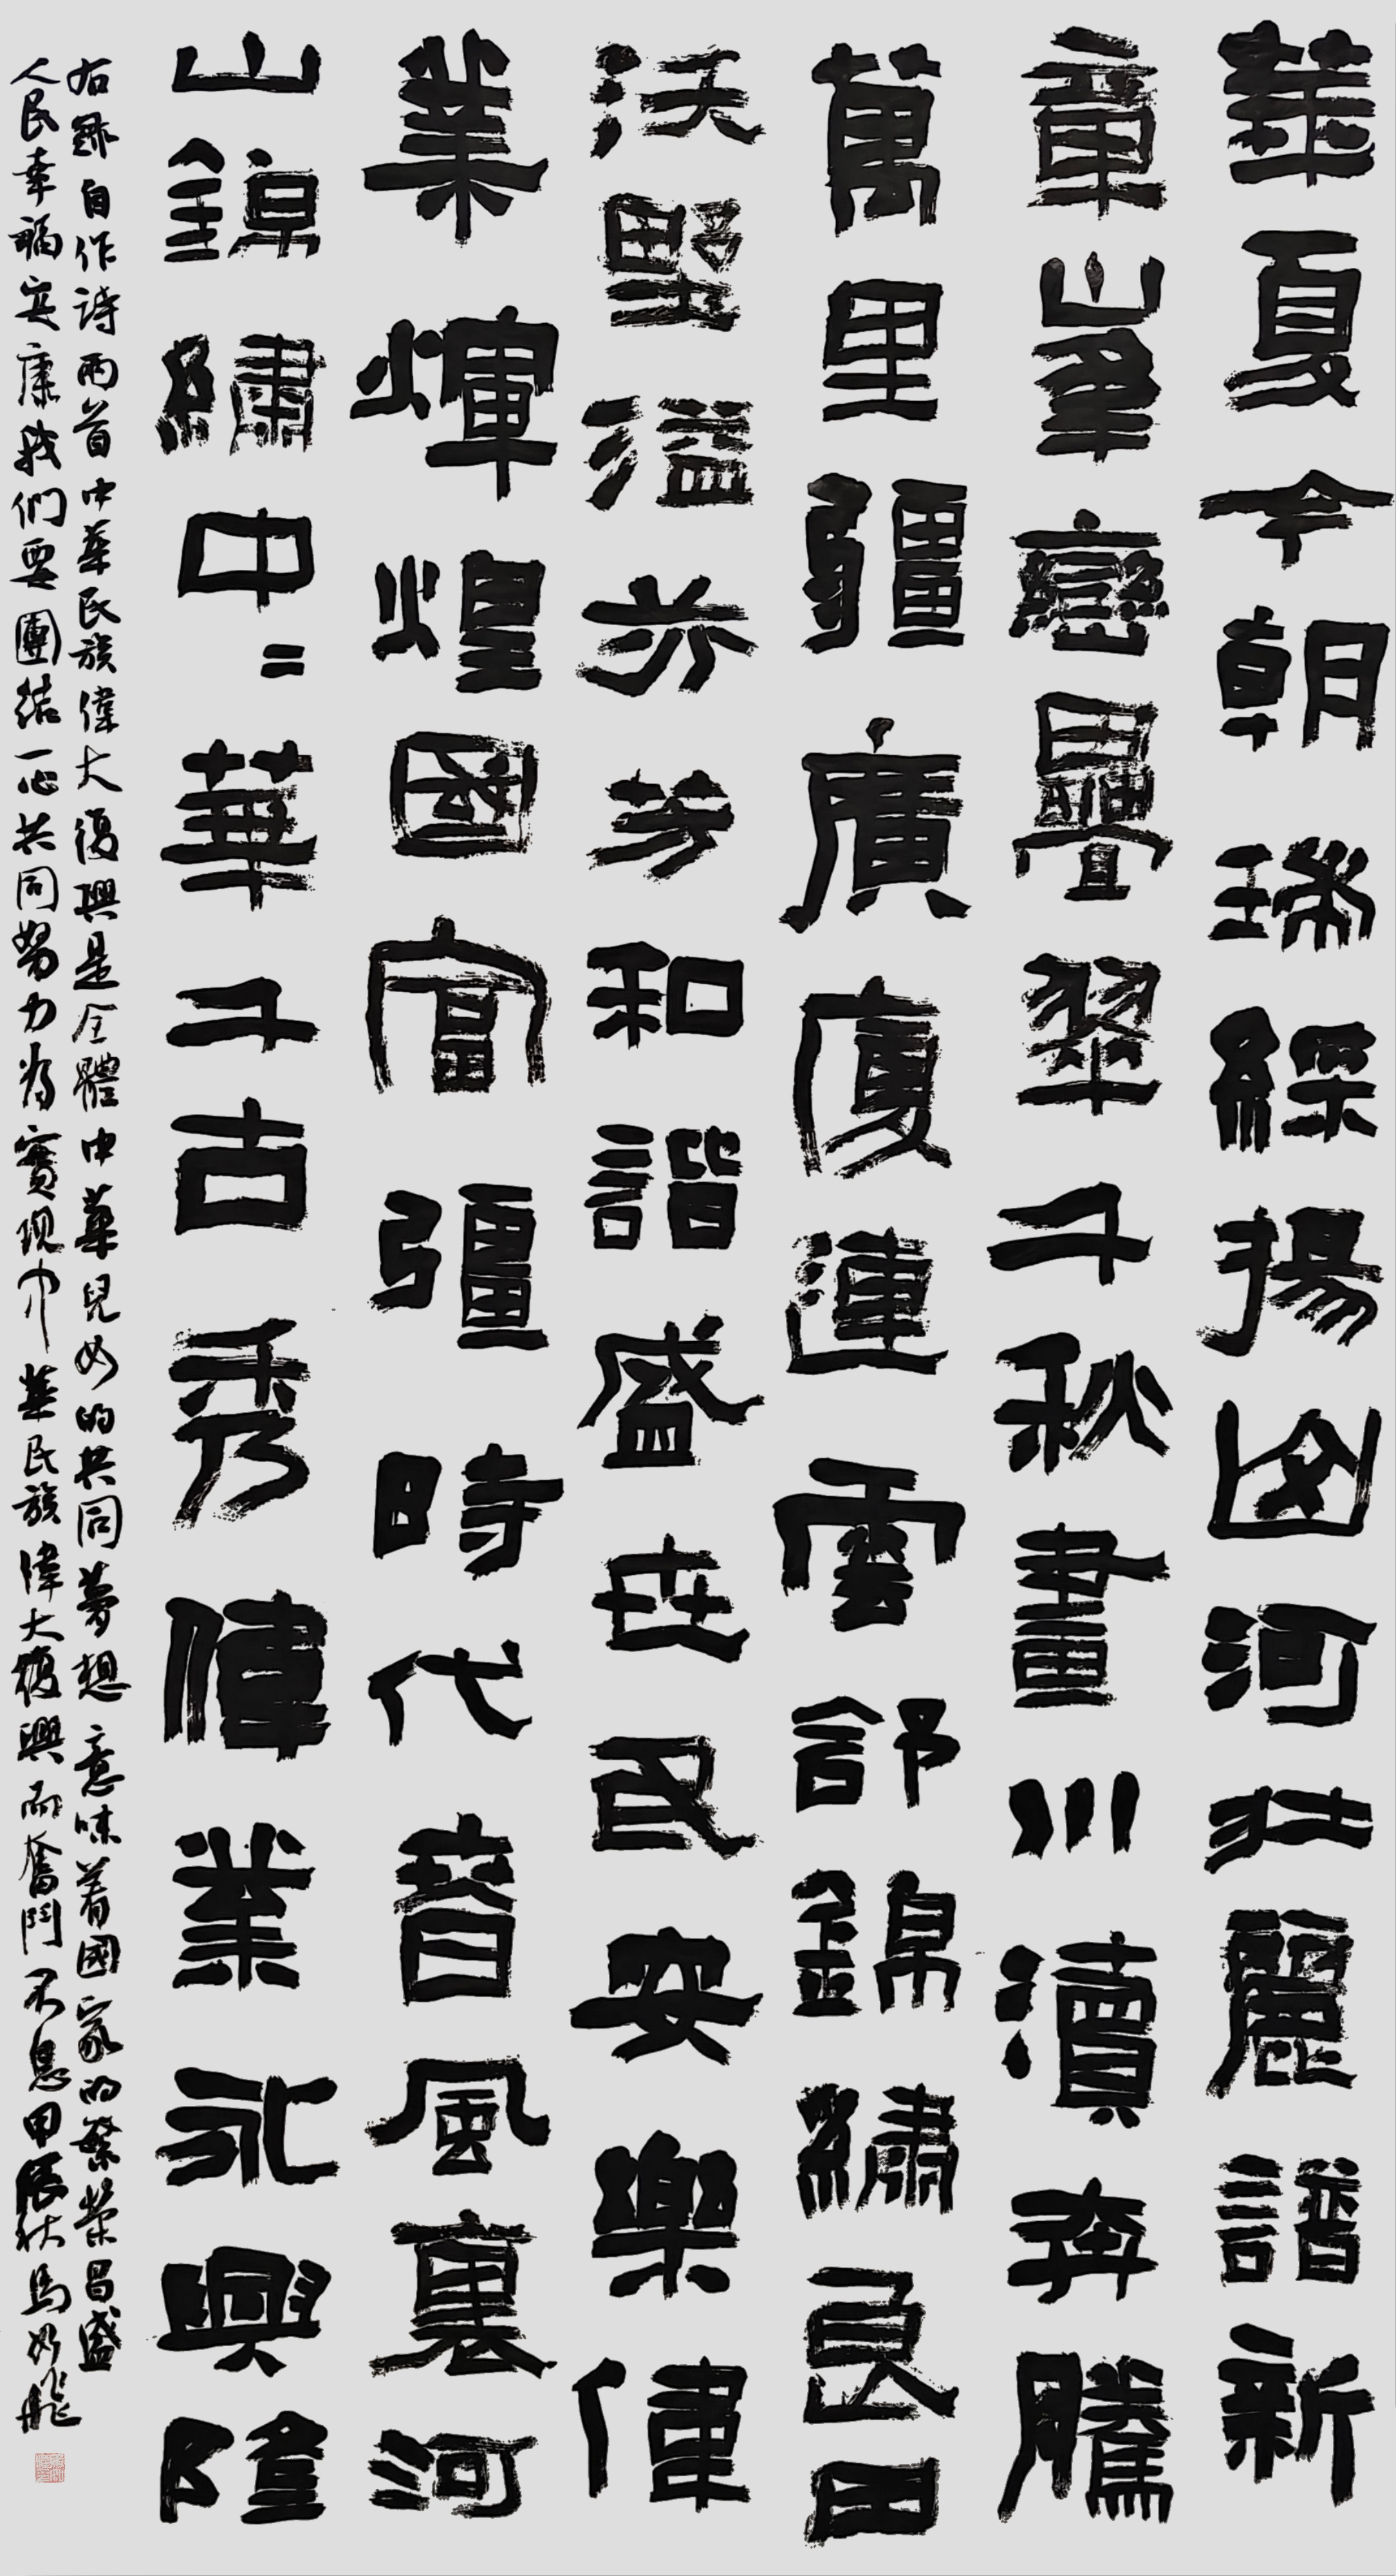 華夏今朝瑞綵揚山河壯麗譜新
章峯巒疊翠千秋畫川瀆奔騰
萬里疆廣廈連雲舒錦繡良田
沃野溢芬芳和諧盛世民安樂偉
業輝煌國富彊時代春風裏河
山錦繡中〻華千古秀偉業永興隆
右錄自作詩兩首中華民族偉大復興是全體中華兒女的共同夢想意味着國家的繁榮昌盛
人民幸福安康我們要團結一心共同努力為實現中華民族偉大復興而奮鬥不息甲辰秋馬如飛